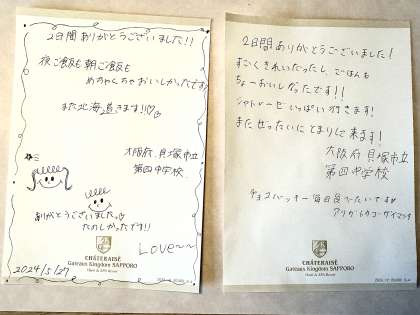 2日間ありがとうございました!!
夜ご飯も朝ご飯も
めちゃくちゃおいしかったです!
また北海道きます!!♡
大阪府貝塚市立
第四中学校
ありがとうございました。
たのしかったです!!
Love~~
CHÂTERAISÉ
Gateaux Kingdom SAPPORO
Hotel & SPA Resort
2024/5/27
2日間ありがとうございました!
すごくきれいだったし、ごはんも
ちょーおいしかったです!!
シャトレーゼいっぱい行きます!
またぜったいにとまりに来ます!
大阪府貝塚市立
第四中学校
チョコバッキー毎日食べたいです
アリガトウゴザイマシタ
CHÂTERAISÉ
Gateaux Kingdom SAPPORO
Hotel & SPA Resort